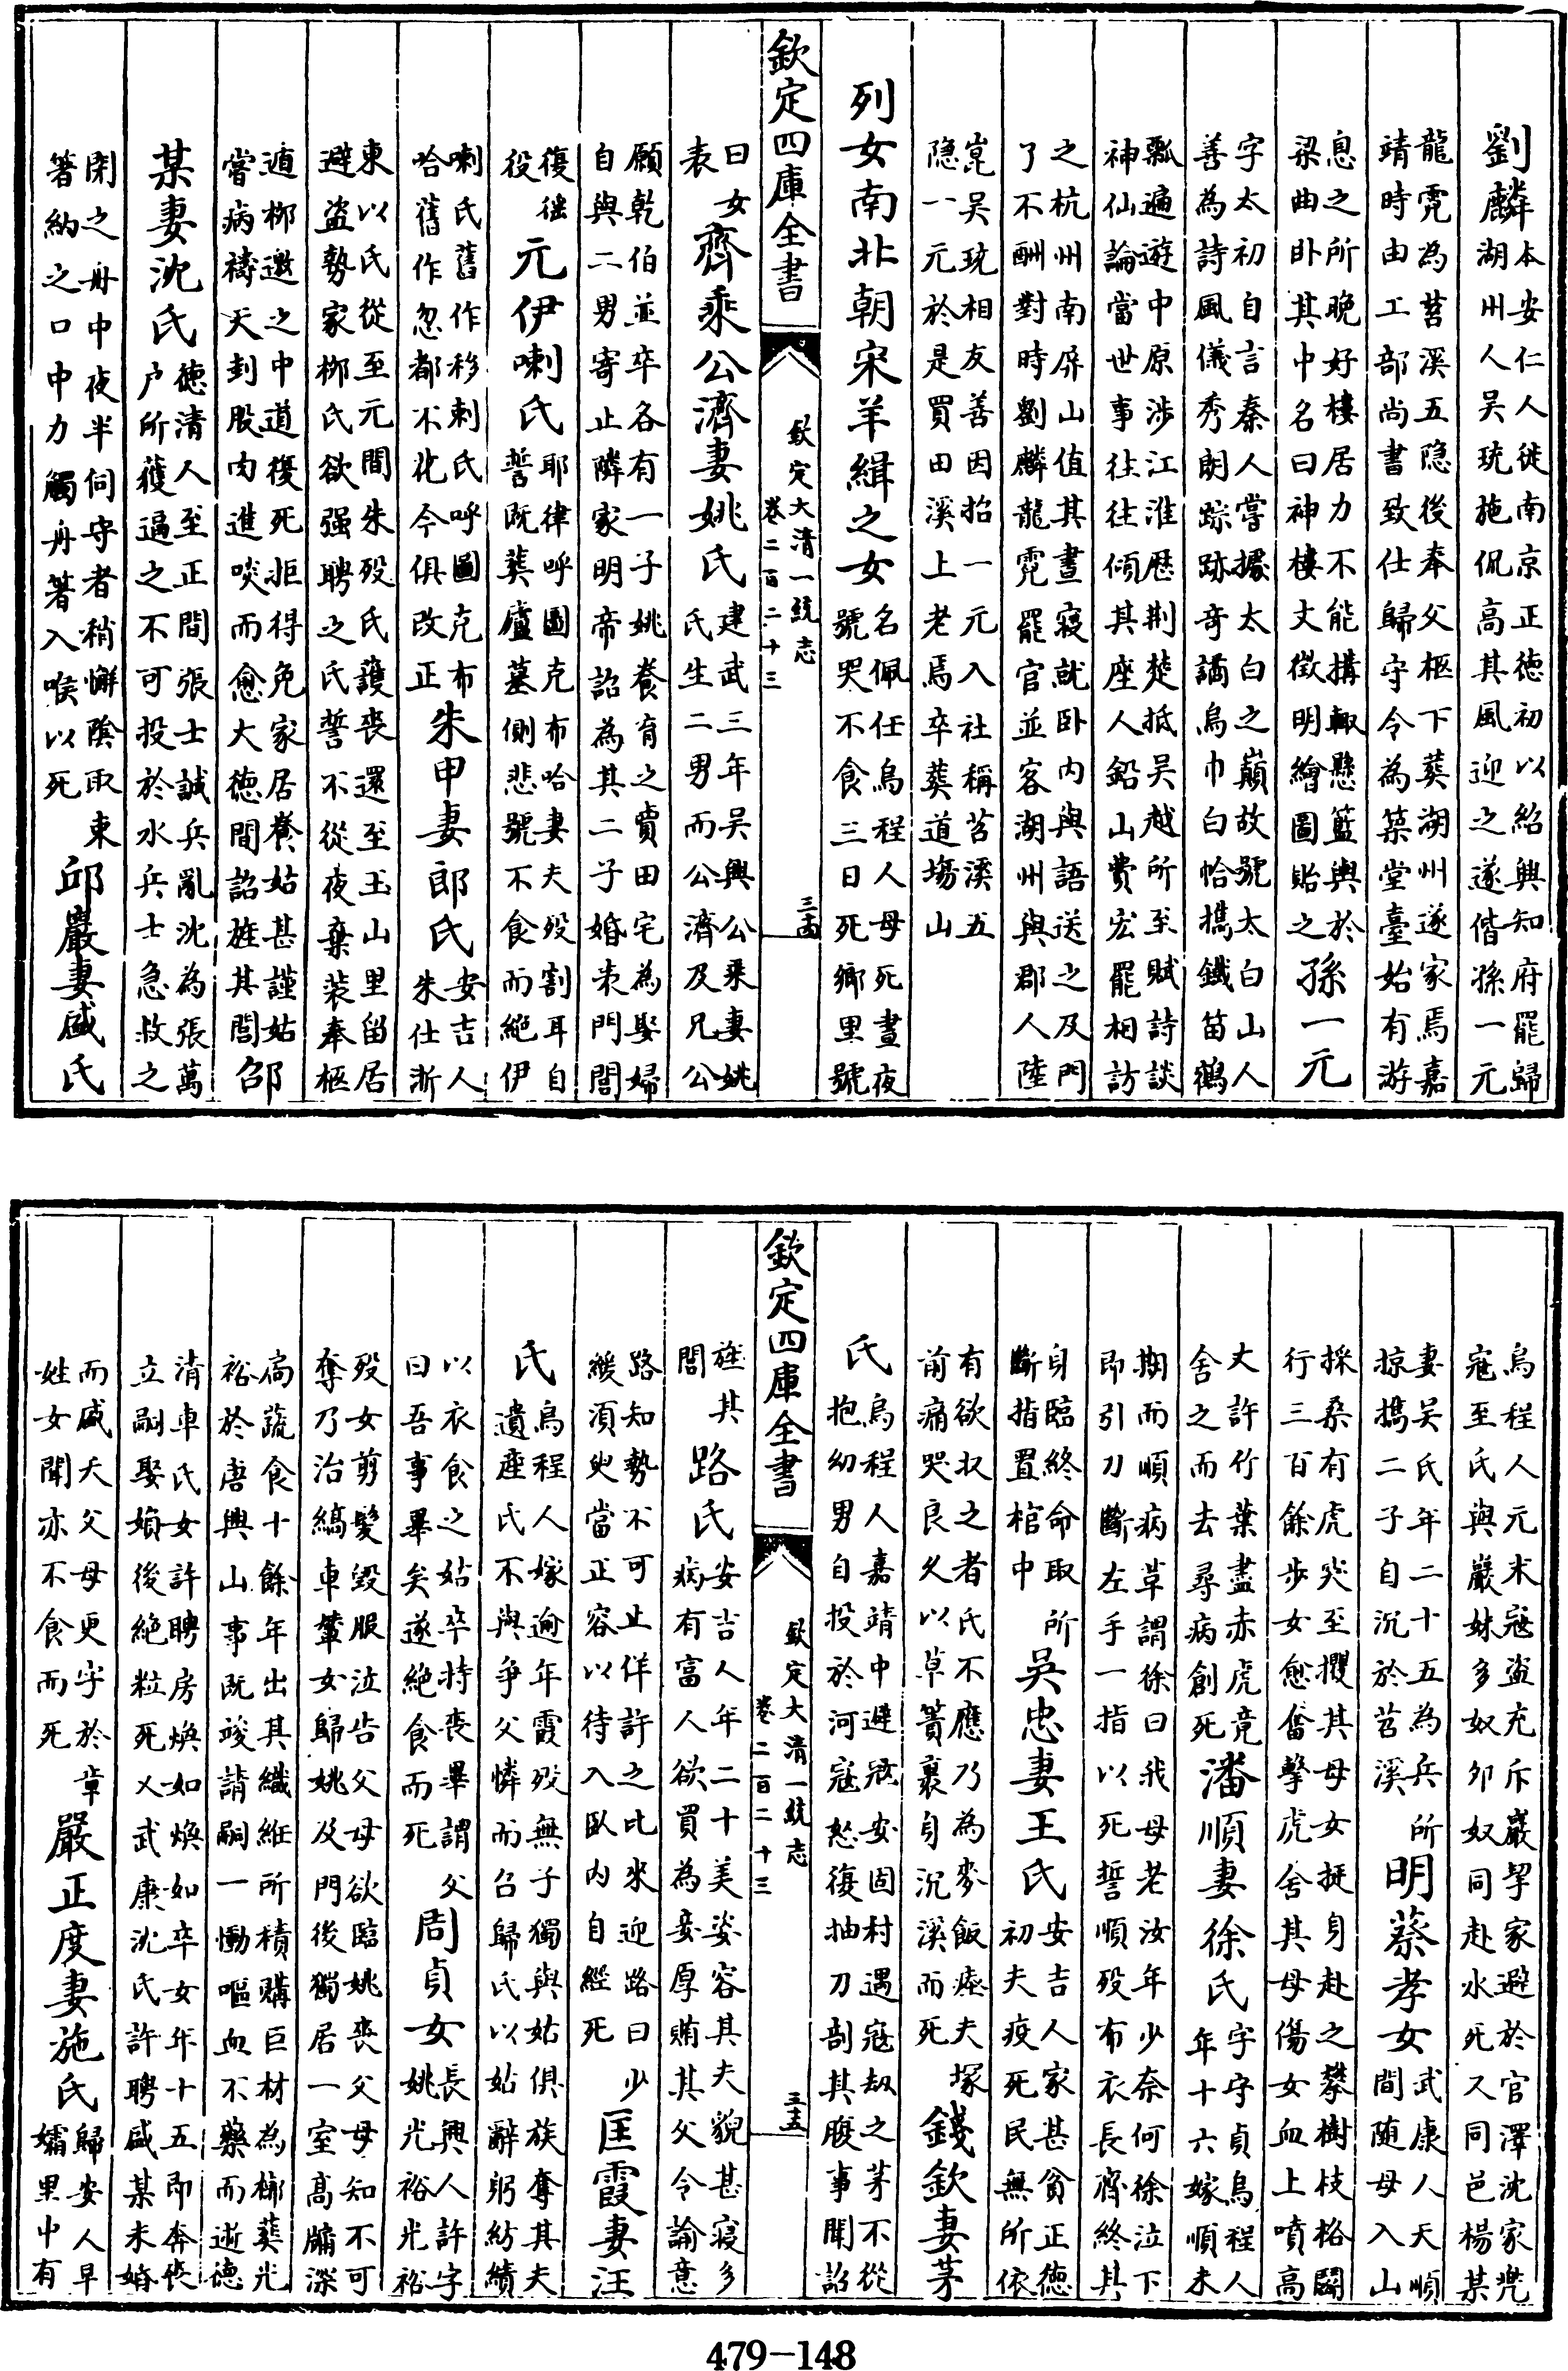 劉麟
本安仁人徙南京正德初以紹興知府罷歸
湖州人吳珫施侃高其風迎之遂偕孫一元
龍霓為苕溪五隐後奉父柩下葬湖州遂家焉嘉
靖時由工部尚書致仕歸守令為築堂臺始有游
息之所晚好樓居力不能搆輙懸籃輿於
梁曲卧其中名曰神樓文徴明繪圖貽之
孫一元
字太初自言秦人嘗據太白之巔故號太白山人
善為詩風儀秀朗踪跡奇譎烏巾白帢擕鐡笛鶴
瓢遍遊中原涉江淮歴荆楚抵吳越所至賦詩談
神仙論當世事往往傾其座人鉛山費宏罷相訪
之杭州南屏山值其晝寢就卧内與語送之及門
了不酬對時劉麟龍霓罷官並客湖州與郡人陸
崑吳珫相友善因招一元入社稱苕溪五
隐一元於是買田溪上老焉卒葬道塲山
列女南北朝宋羊緝之女
名佩任烏程人母死晝夜
號哭不食三日死鄉里號
欽定四庫全書
欽定大清一統志
卷二百二十三
三十四
曰女
表
齊乘公濟妻姚氏
建武三年吳興公乘妻姚
氏生二男而公濟及兄公
願乾伯並卒各有一子姚養育之賣田宅為娶婦
自與二男寄止隣家明帝詔為其二子婚表門閭
復徭
役
元伊喇氏
耶律呼圖克布哈妻夫殁割耳自
誓既葬廬墓側悲號不食而絶伊
喇氏舊作移剌氏呼圖克布
哈舊作忽都不花今俱改正
朱甲妻郎氏
安吉人
朱仕浙
東以氏從至元間朱殁氏護喪還至玉山里留居
避盗勢家柳氏欲强聘之氏誓不從夜棄裝奉柩
遁柳邀之中道復死拒得免家居養姑甚謹姑
嘗病禱天刲股肉進啖而愈大德間詔旌其閭
邵
某妻沈氏
德清人至正間張士誠兵亂沈為張萬
户所獲逼之不可投於水兵士急救之
閉之舟中夜半伺守者稍懈隂取束
箸納之口中力觸舟箸入喉以死
邱巖妻戚氏
烏程人元末寇盗充斥巖挈家避於官澤沈家兠
寇至氏與巖妹多奴卯奴同赴水死又同邑楊某
妻吳氏年二十五為兵所
掠擕二子自沉於苕溪
明蔡孝女
武康人天順
間随母入山
採桑有虎突至攫其母女挺身赴之攀樹枝格鬬
行三百餘步女愈奮擊虎舍其母傷女血上噴高
丈許竹葉盡赤虎竟
舍之而去尋病創死
潘順妻徐氏
字守貞烏程人
年十六嫁順未
期而順病革謂徐曰我母老汝年少奈何徐泣下
即引刀斷左手一指以死誓順殁布衣長齋終其
身臨終命取所
斷指置棺中
吳忠妻王氏
安吉人家甚貧正德
初夫疫死民無所依
有欲収之者氏不應乃為麥飯瘞夫塚
前痛哭良久以草蓑裹身沉溪而死
錢欽妻茅
氏
烏程人嘉靖中避寇安固村遇寇刼之茅不從
抱幼男自投於河寇怒復抽刀剖其腹事聞詔
旌其
閭
路氏
安吉人年二十美姿容其夫貌甚寢多
病有富人欲買為妾厚賄其父令諭意
路知勢不可止佯許之比來迎路曰少
緩湏臾當正容以待入卧内自經死
匡霞妻汪
氏
烏程人嫁逾年霞殁無子獨與姑俱族奪其夫
遺產氏不與爭父憐而召歸氏以姑辭躬紡績
以衣食之姑卒持喪畢謂父
曰吾事畢矣遂絶食而死
周貞女
長興人許字
姚光裕光裕
殁女剪髮毁服泣告父母欲臨姚喪父母知不可
奪乃治縞車輦女歸姚及門後獨居一室髙牗深
扃蔬食十餘年出其織絍所積購巨材為槨葬光
裕於唐興山事既竣請嗣一慟嘔血不藥而逝德
清車氏女許聘房煥如煥如卒女年十五即奔喪
立嗣娶媍後絶粒死又武康沈氏許聘戚某未婚
而戚夭父母更字於章
姓女聞亦不食而死
嚴正度妻施氏
歸安人早
孀里中有
欽定四庫全書
欽定大清一統志
卷二百二十三
三十五
479-148